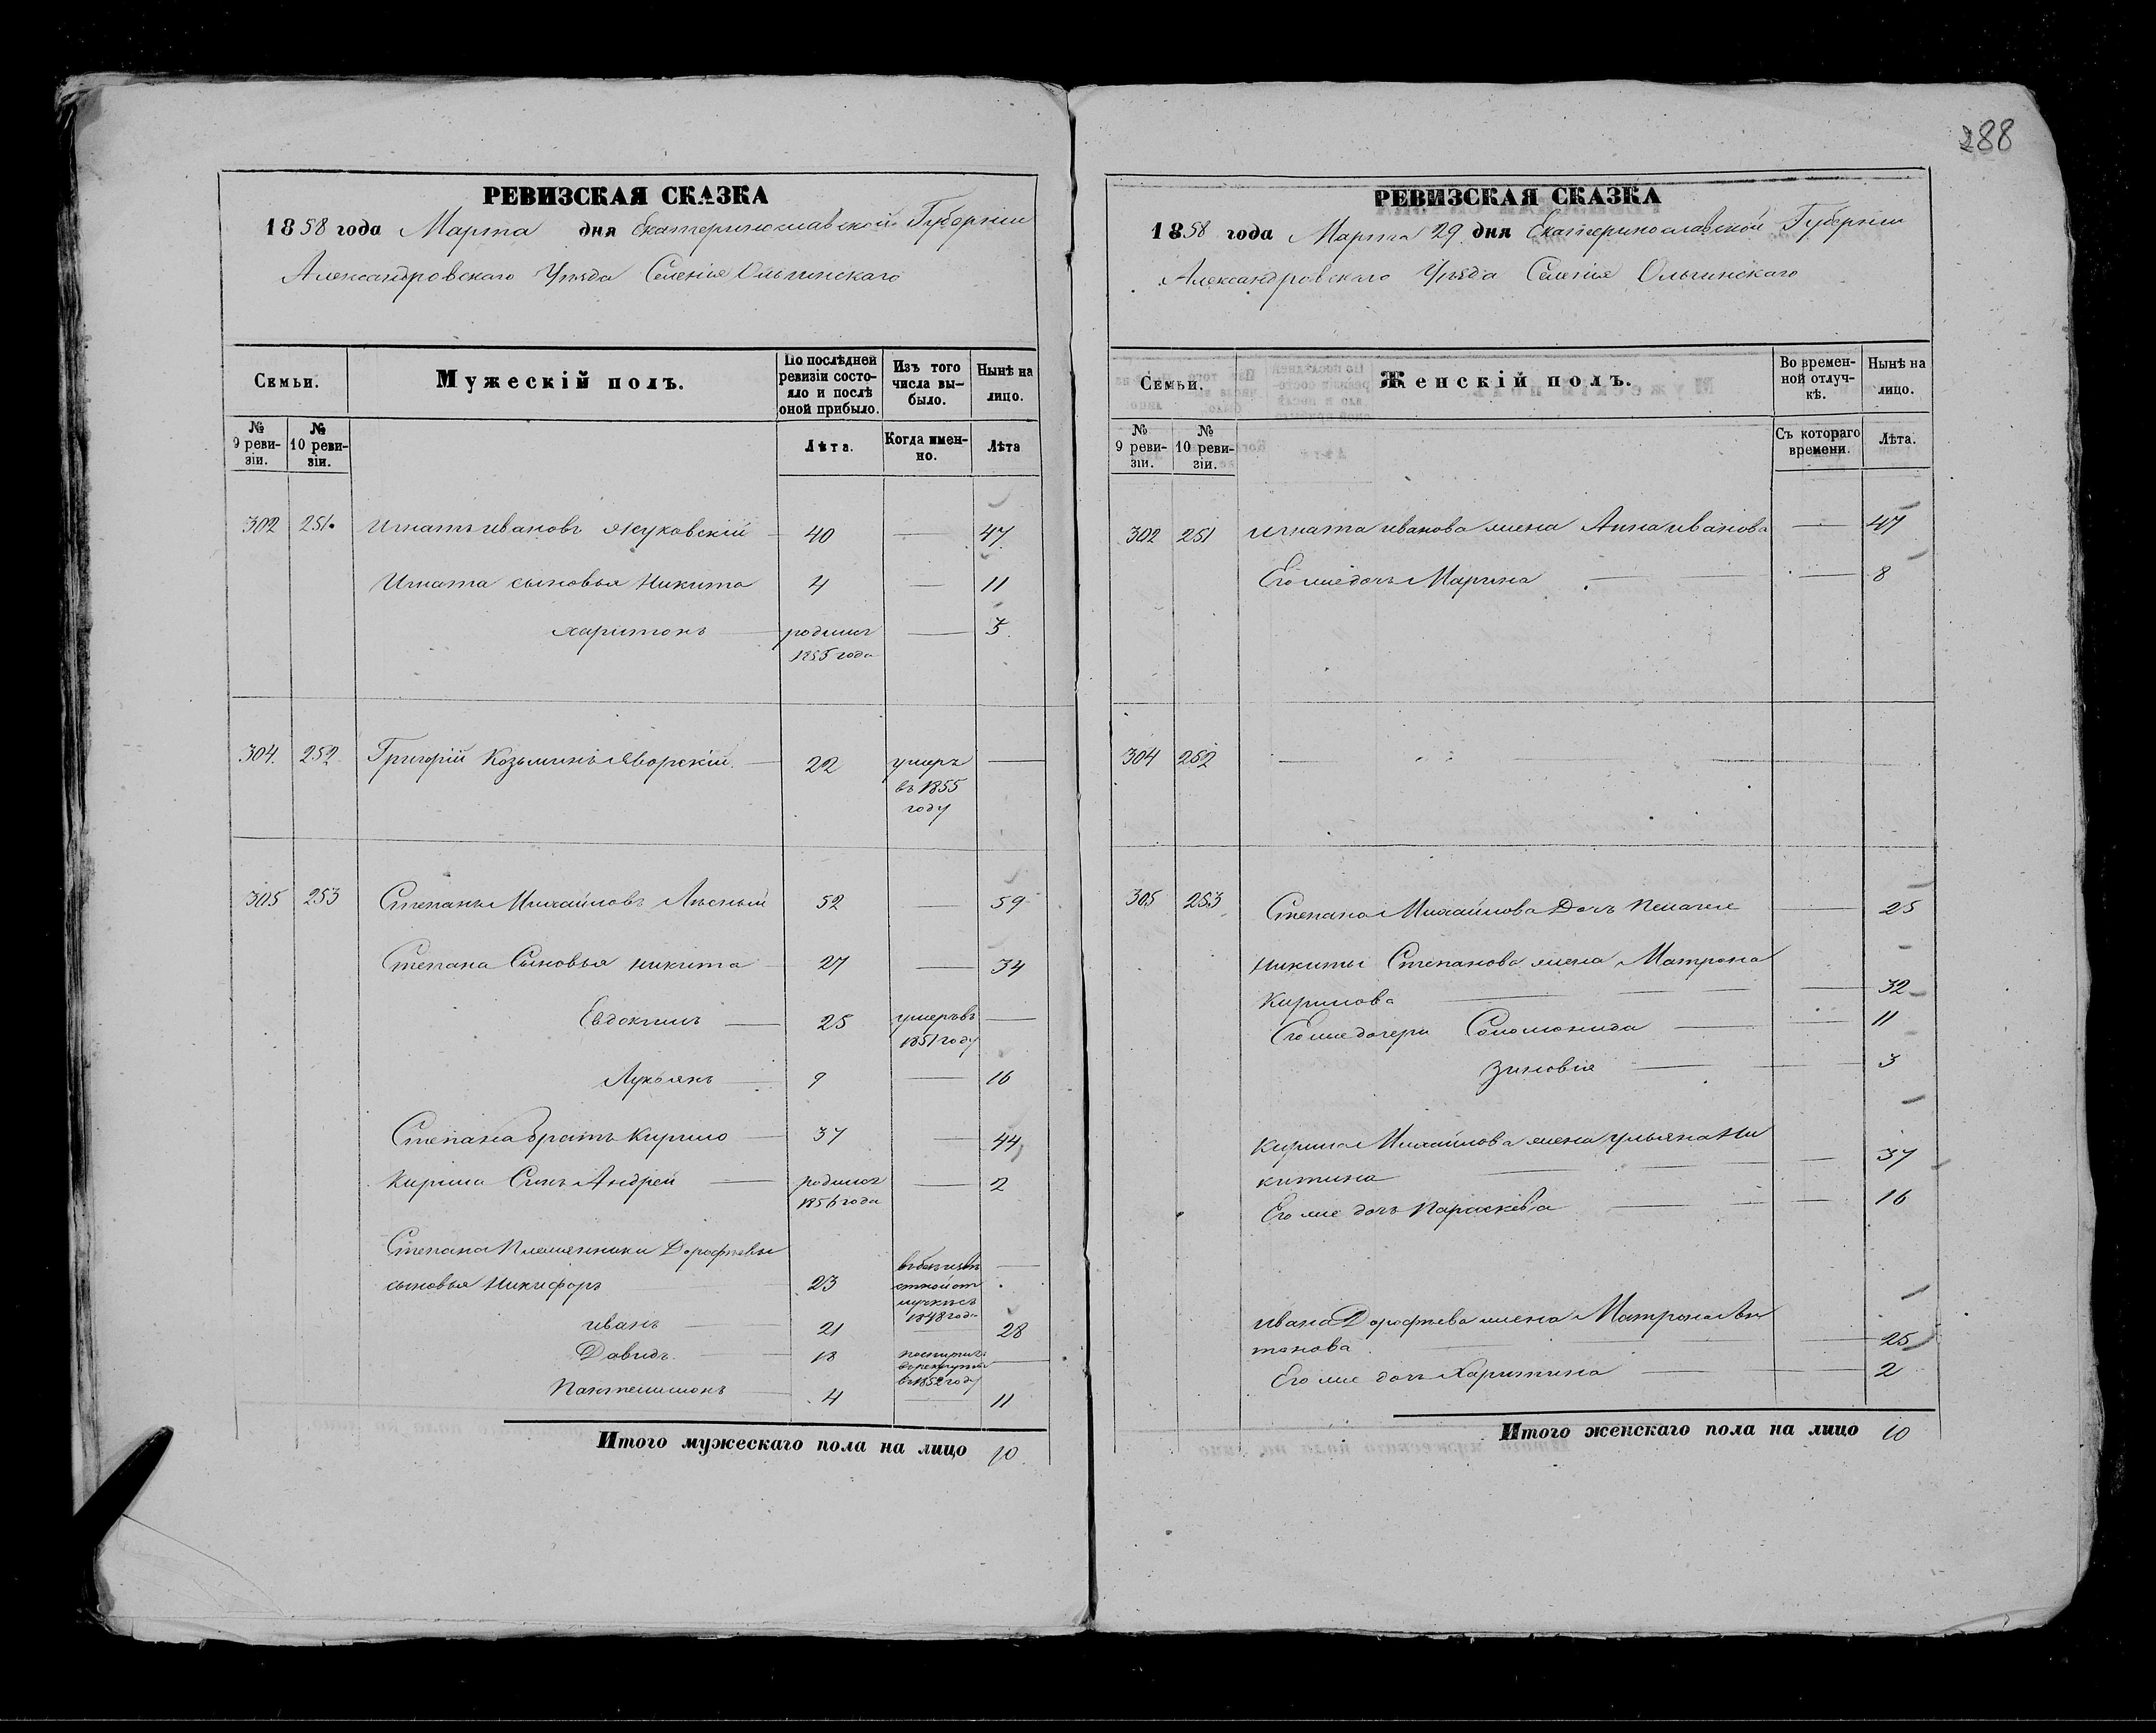 288
РЕВИЗСКАЯ СКАЗКА
1858 года Марта дня Екатеринославской Губерніи
Александровскаго Уѣзда Селенія Ольгинскаго
Семьи.
Мужескій полъ.
По послѣдней ревизіи состояло и послѣ оной прибыло.
Изъ того числа выбыло.
Нынѣ на лицо.
№ 9 ревизіи.
№ 10 ревизіи.
Лѣта.
Когда именно.
Лѣта
302 251. Игнатъ Ивановъ Жуковскій 40 — 47
Игната сыновья Никита 4 — 11
Харитонъ родился 1855 года — 3.
304. 252 Григорій Козьминъ Яворскій. 22 умеръ въ 1855 году —
305 253 Степанъ Михайловъ Лѣсный 52 — 59
Степана Сыновья Никита 27 — 34
Евдокимъ — 25 умеръ въ 1851 году —
Лукьянъ 9 — 16
Степана братъ Кирило 37 — 44
Кирила Сынъ Андрей — родился 1856 года — 2
Степана Племянники Дорофѣевы
сыновья Никифоръ 23 въ безъизвѣстной отлучкѣ съ 1848 года —
Иванъ — 21 — 28
Давидъ. — 18 въ рекруты въ 1852 году —
Пантелимонъ 4 — 11
Итого мужескаго пола на лицо 10.
РЕВИЗСКАЯ СКАЗКА
1858 года Марта 29 дня Екатеринославской Губерніи
Александровскаго Уѣзда Селенія Ольгинскаго
Семьи.
Женскій полъ.
Во временной отлучкѣ.
Нынѣ на лицо.
№ 9 ревизіи.
№ 10 ревизіи.
Съ котораго времени.
Лѣта.
302 251 Игната Иванова жена Анна Иванова — 47
Его же дочь Марина — — 8
304 252 — —
305 253 Степана Михайлова Дочь Пелагея — 25
Никиты Степанова жена Матрона
Кирилова — — 32
Его же дочери Соломонида — — 11
Зиновія — — 3
Кирила Михайлова жена Ульяна Ни
китина — — 37
Его же дочь Параскева — — 16
Ивана Дорофѣева жена Матрона Ан
тонова — — 25
Его же дочь Харитина — — 2
Итого женскаго пола на лицо 10